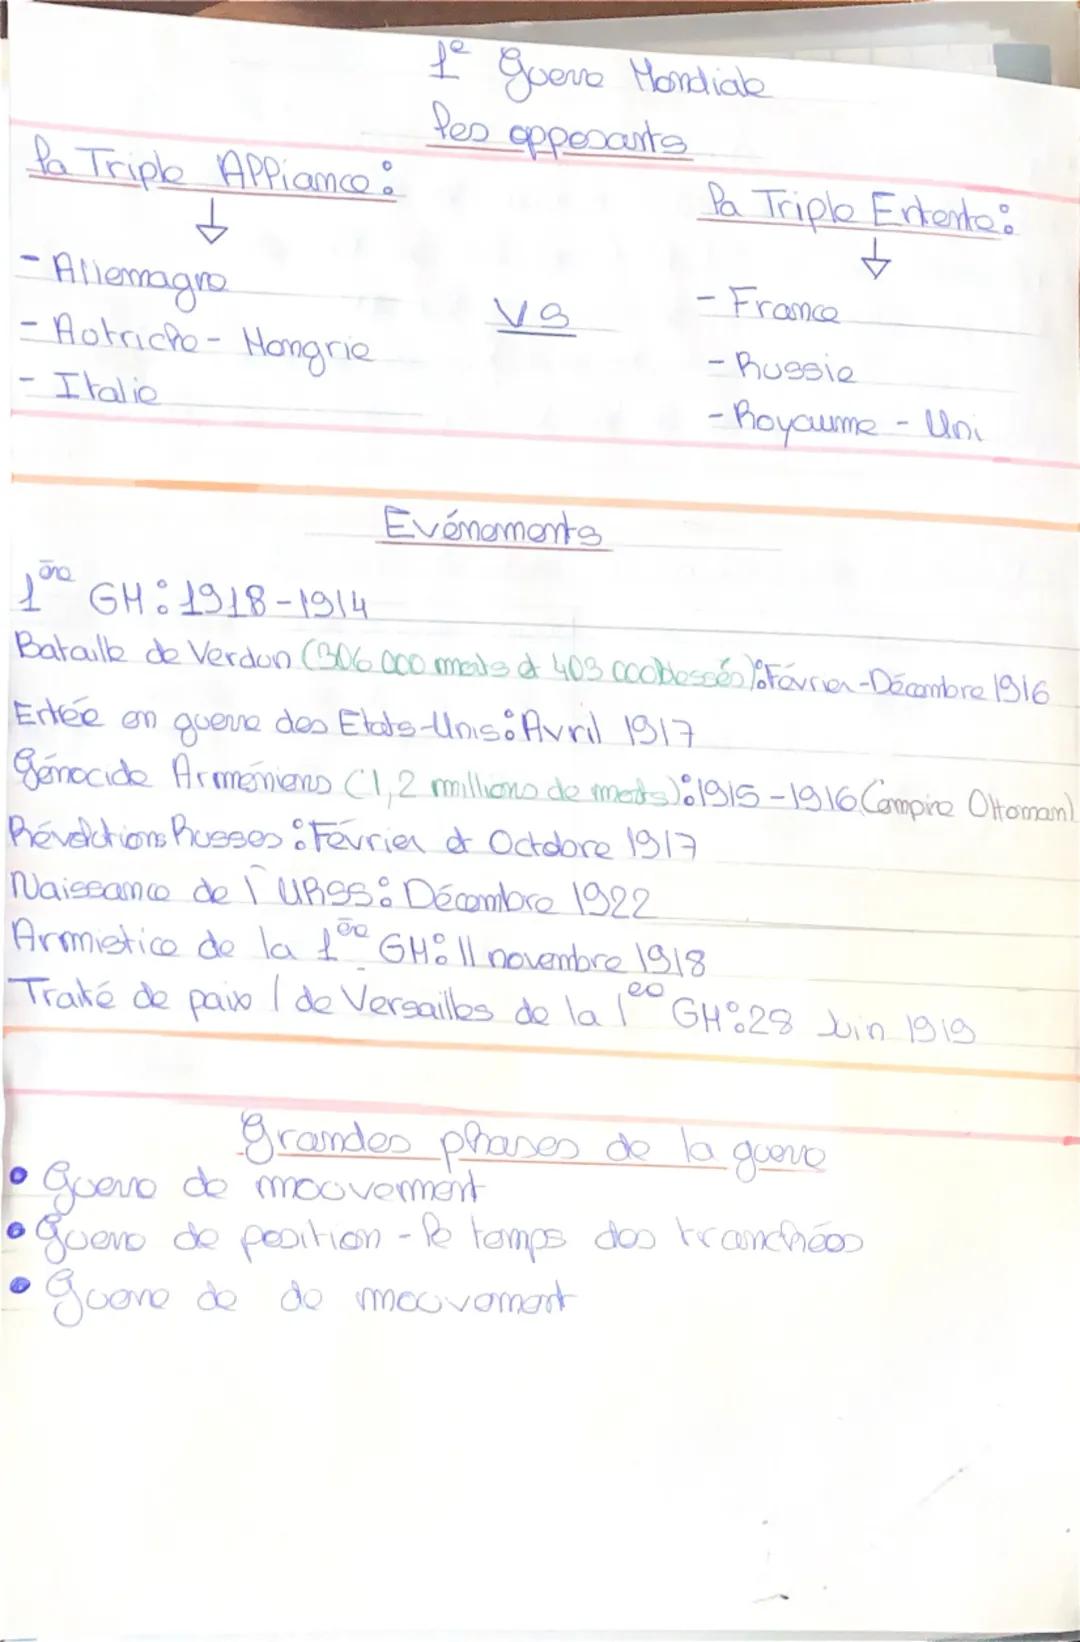 1e Guerre Mondiale
Les opposants
La Triple Alliance :
La Triple Entente :
- Allemagne
- Autriche - Hongrie
- Italie
VS
- France
- Russie
- Royaume - Uni
Evénements
1ère GM : 1918-1914
Bataille de Verdun (306 000 morts et 403 000 blessés) : Février-Décembre 1916
Entée en guerre des Etats-Unis : Avril 1917
Génocide Arméniens (1,2 millions de morts) : 1915-1916 (empire Ottoman)
Révolutions Russes : Février et Octobre 1917
Naissance de l'URSS : Décembre 1922
Armistice de la 1ère GM : 11 novembre 1918
Traité de paix / de Versailles de la 1ere GM : 28 Juin 1919
Grandes phases de la guerre
• Guerre de mouvement
• Guerre de position - le temps des tranchées
• Guerre de de mouvement